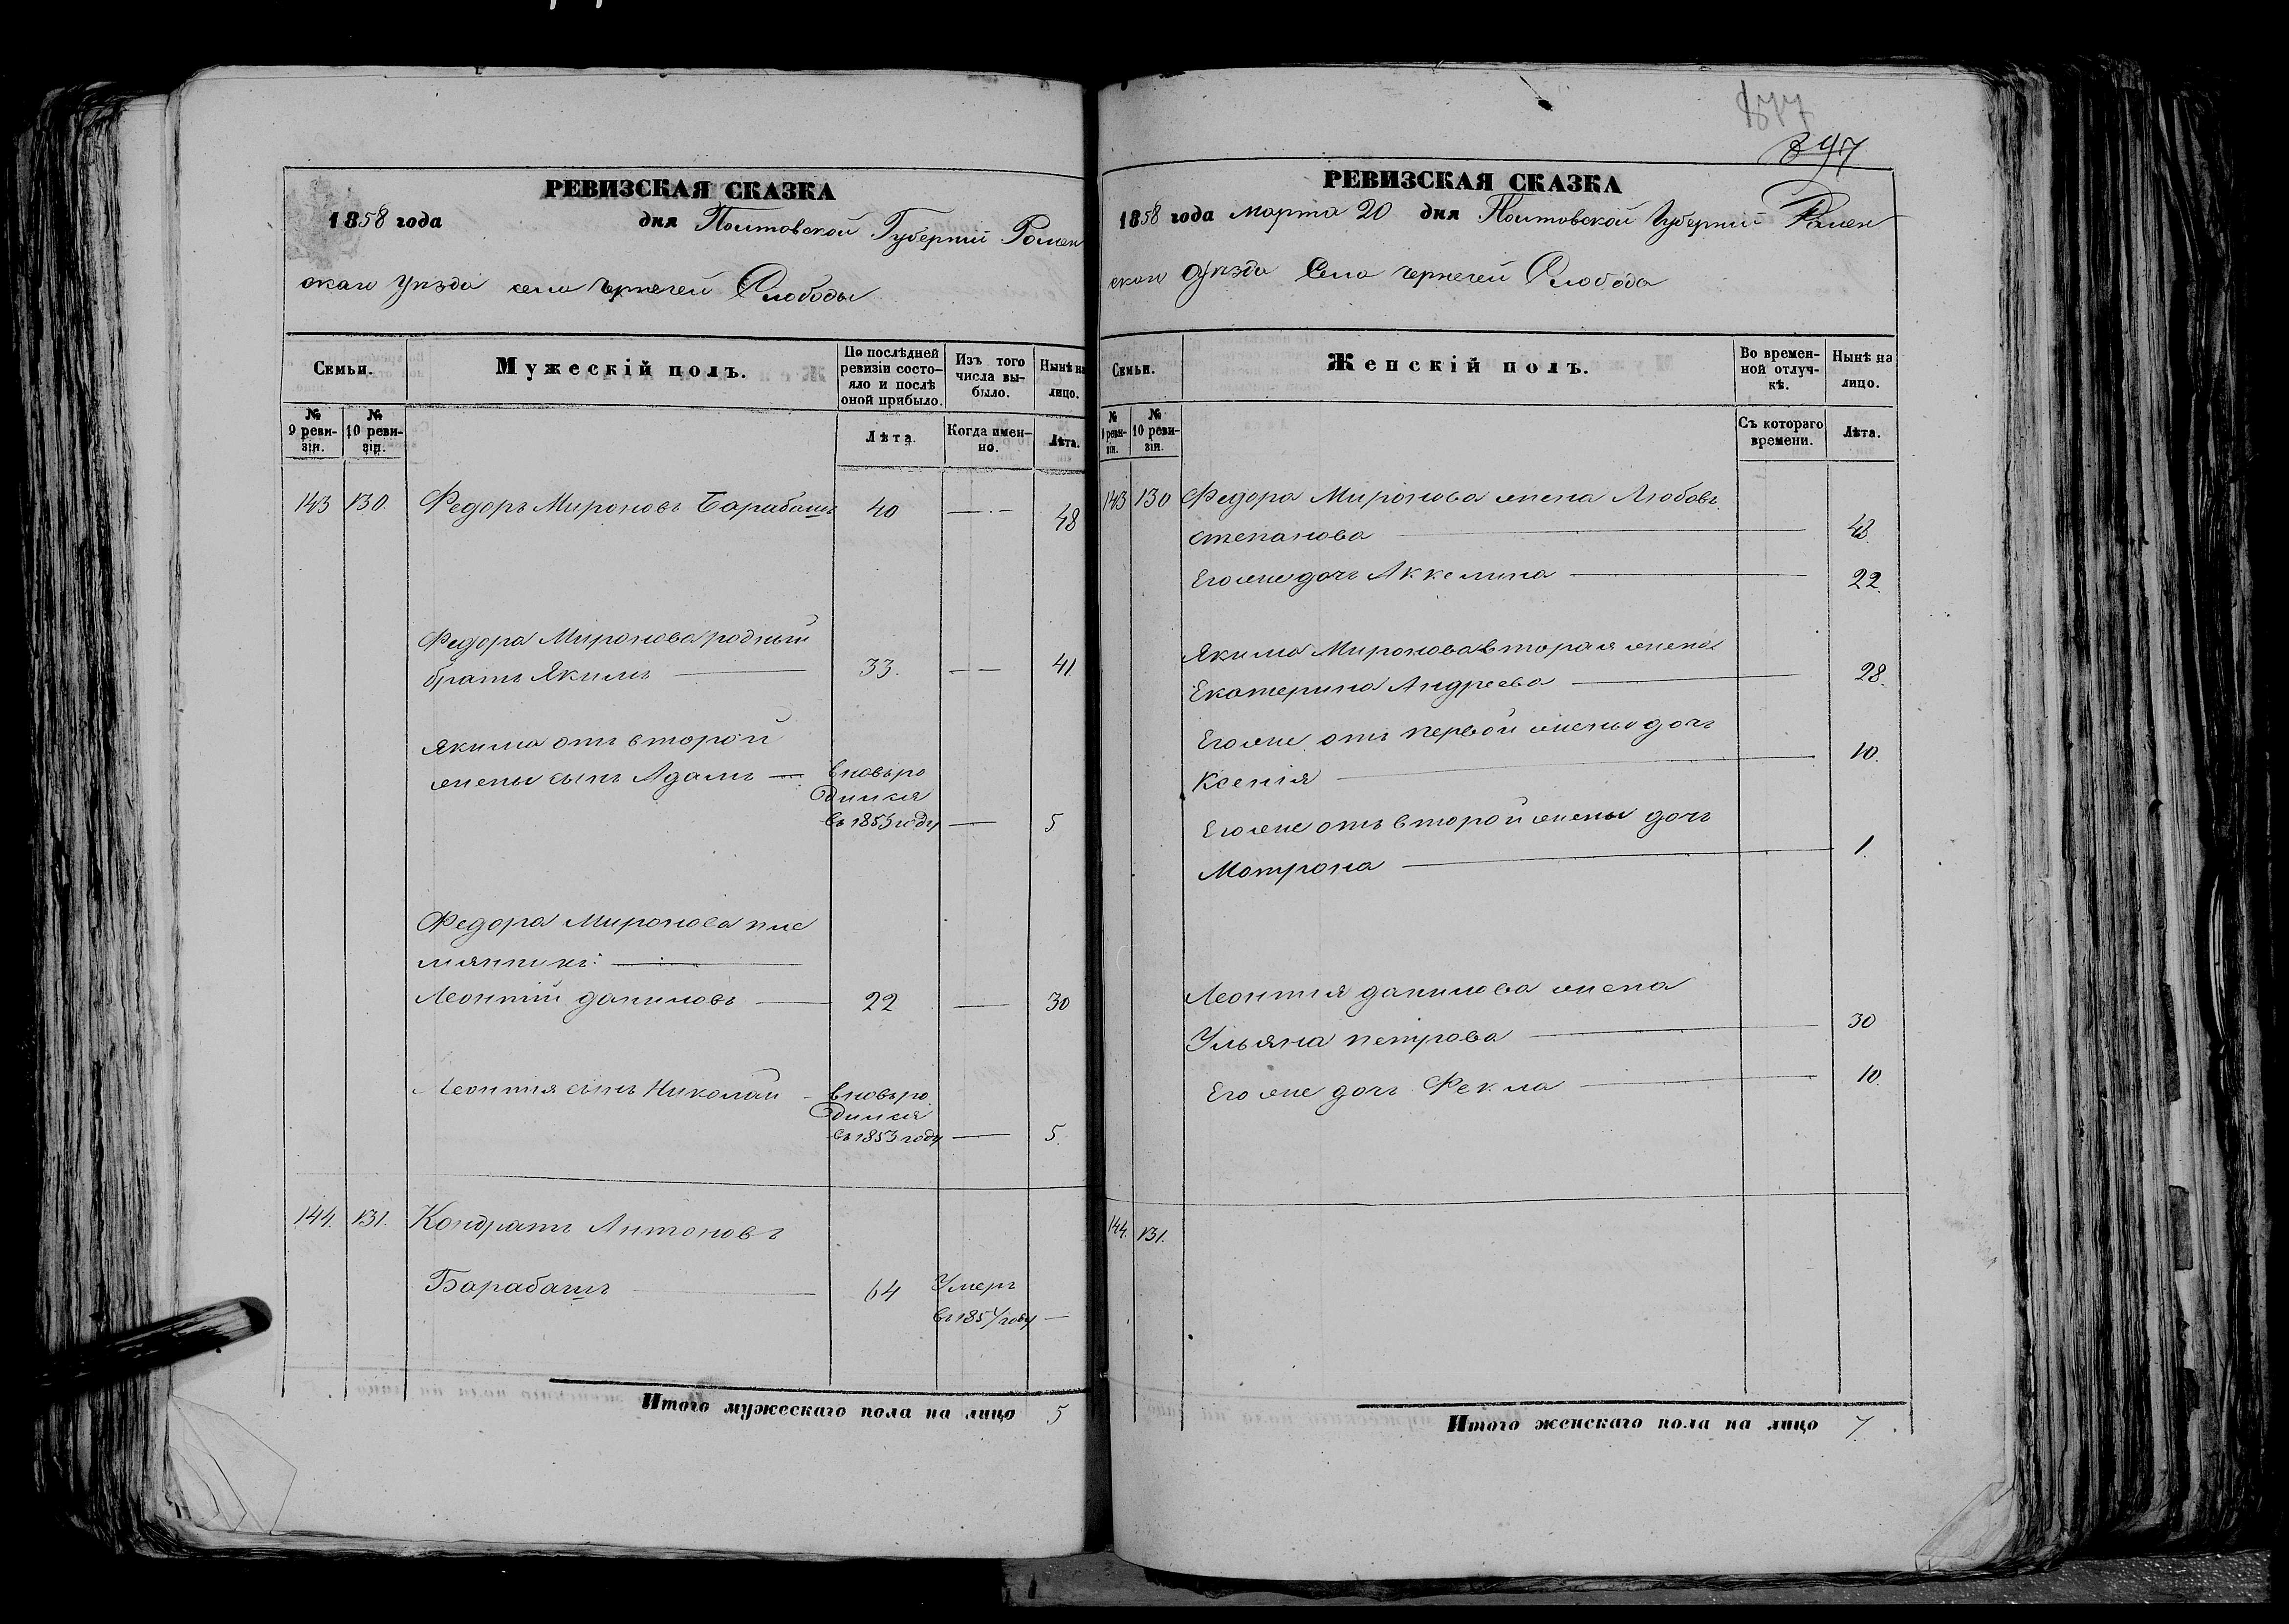 РЕВИЗСКАЯ СКАЗКА
1858 года дня Полтовской Губернии Ромен
скаго Уѣзда села Чернечей Слободы
Семьи.
Мужескій полъ.
По послѣдней ревизіи состояло и послѣ оной прибыло.
Изъ того числа выбыло.
Нынѣ на лицо.
№ 9 ревизіи.
№ 10 ревизіи.
Лѣта.
Когда именно.
Лѣта.
143 130. Федоръ Мироновъ Барабашъ 40 — 48
Федора Миронова родный
братъ Якимъ — 33. — 41
Якима отъ второй
жены сынъ Адамъ — вновь ро
дился
въ 1853 году — 5
Федора Миронова пле
мянникъ: —
Леонтій Даниловъ — 22 — 30
Леонтія сынъ Николай — вновь ро
дился
въ 1853 году — 5.
144. 131. Кондратъ Антоновъ
Барабашъ — 64 Умеръ
въ 185 году —
Итого мужескаго пола на лицо 5
877
897
РЕВИЗСКАЯ СКАЗКА
1858 года Марта 20 дня Полтовской Губернии Ромен
скаго Уѣзда Села Чернечей Слобода
Семьи.
Женскій полъ.
Во временной отлучкѣ.
Нынѣ на лицо.
№ 9 ревизіи.
№ 10 ревизіи.
Съ котораго времени.
Лѣта.
143 130 Федора Миронова жена Любовь
степанова — 48.
Его же дочь Аккелина — 22.
Якима Миронова вторая жена
Екатерина Андреева — 28.
Его же отъ первой жены дочь
Ксенія — 10.
Его же отъ второй жены дочь
Мотрона — 1.
Леонтія Данилова жена
Ульяна петрова — 30
Его же дочь Фекла — 10.
144. 131.
Итого женскаго пола на лицо 7.